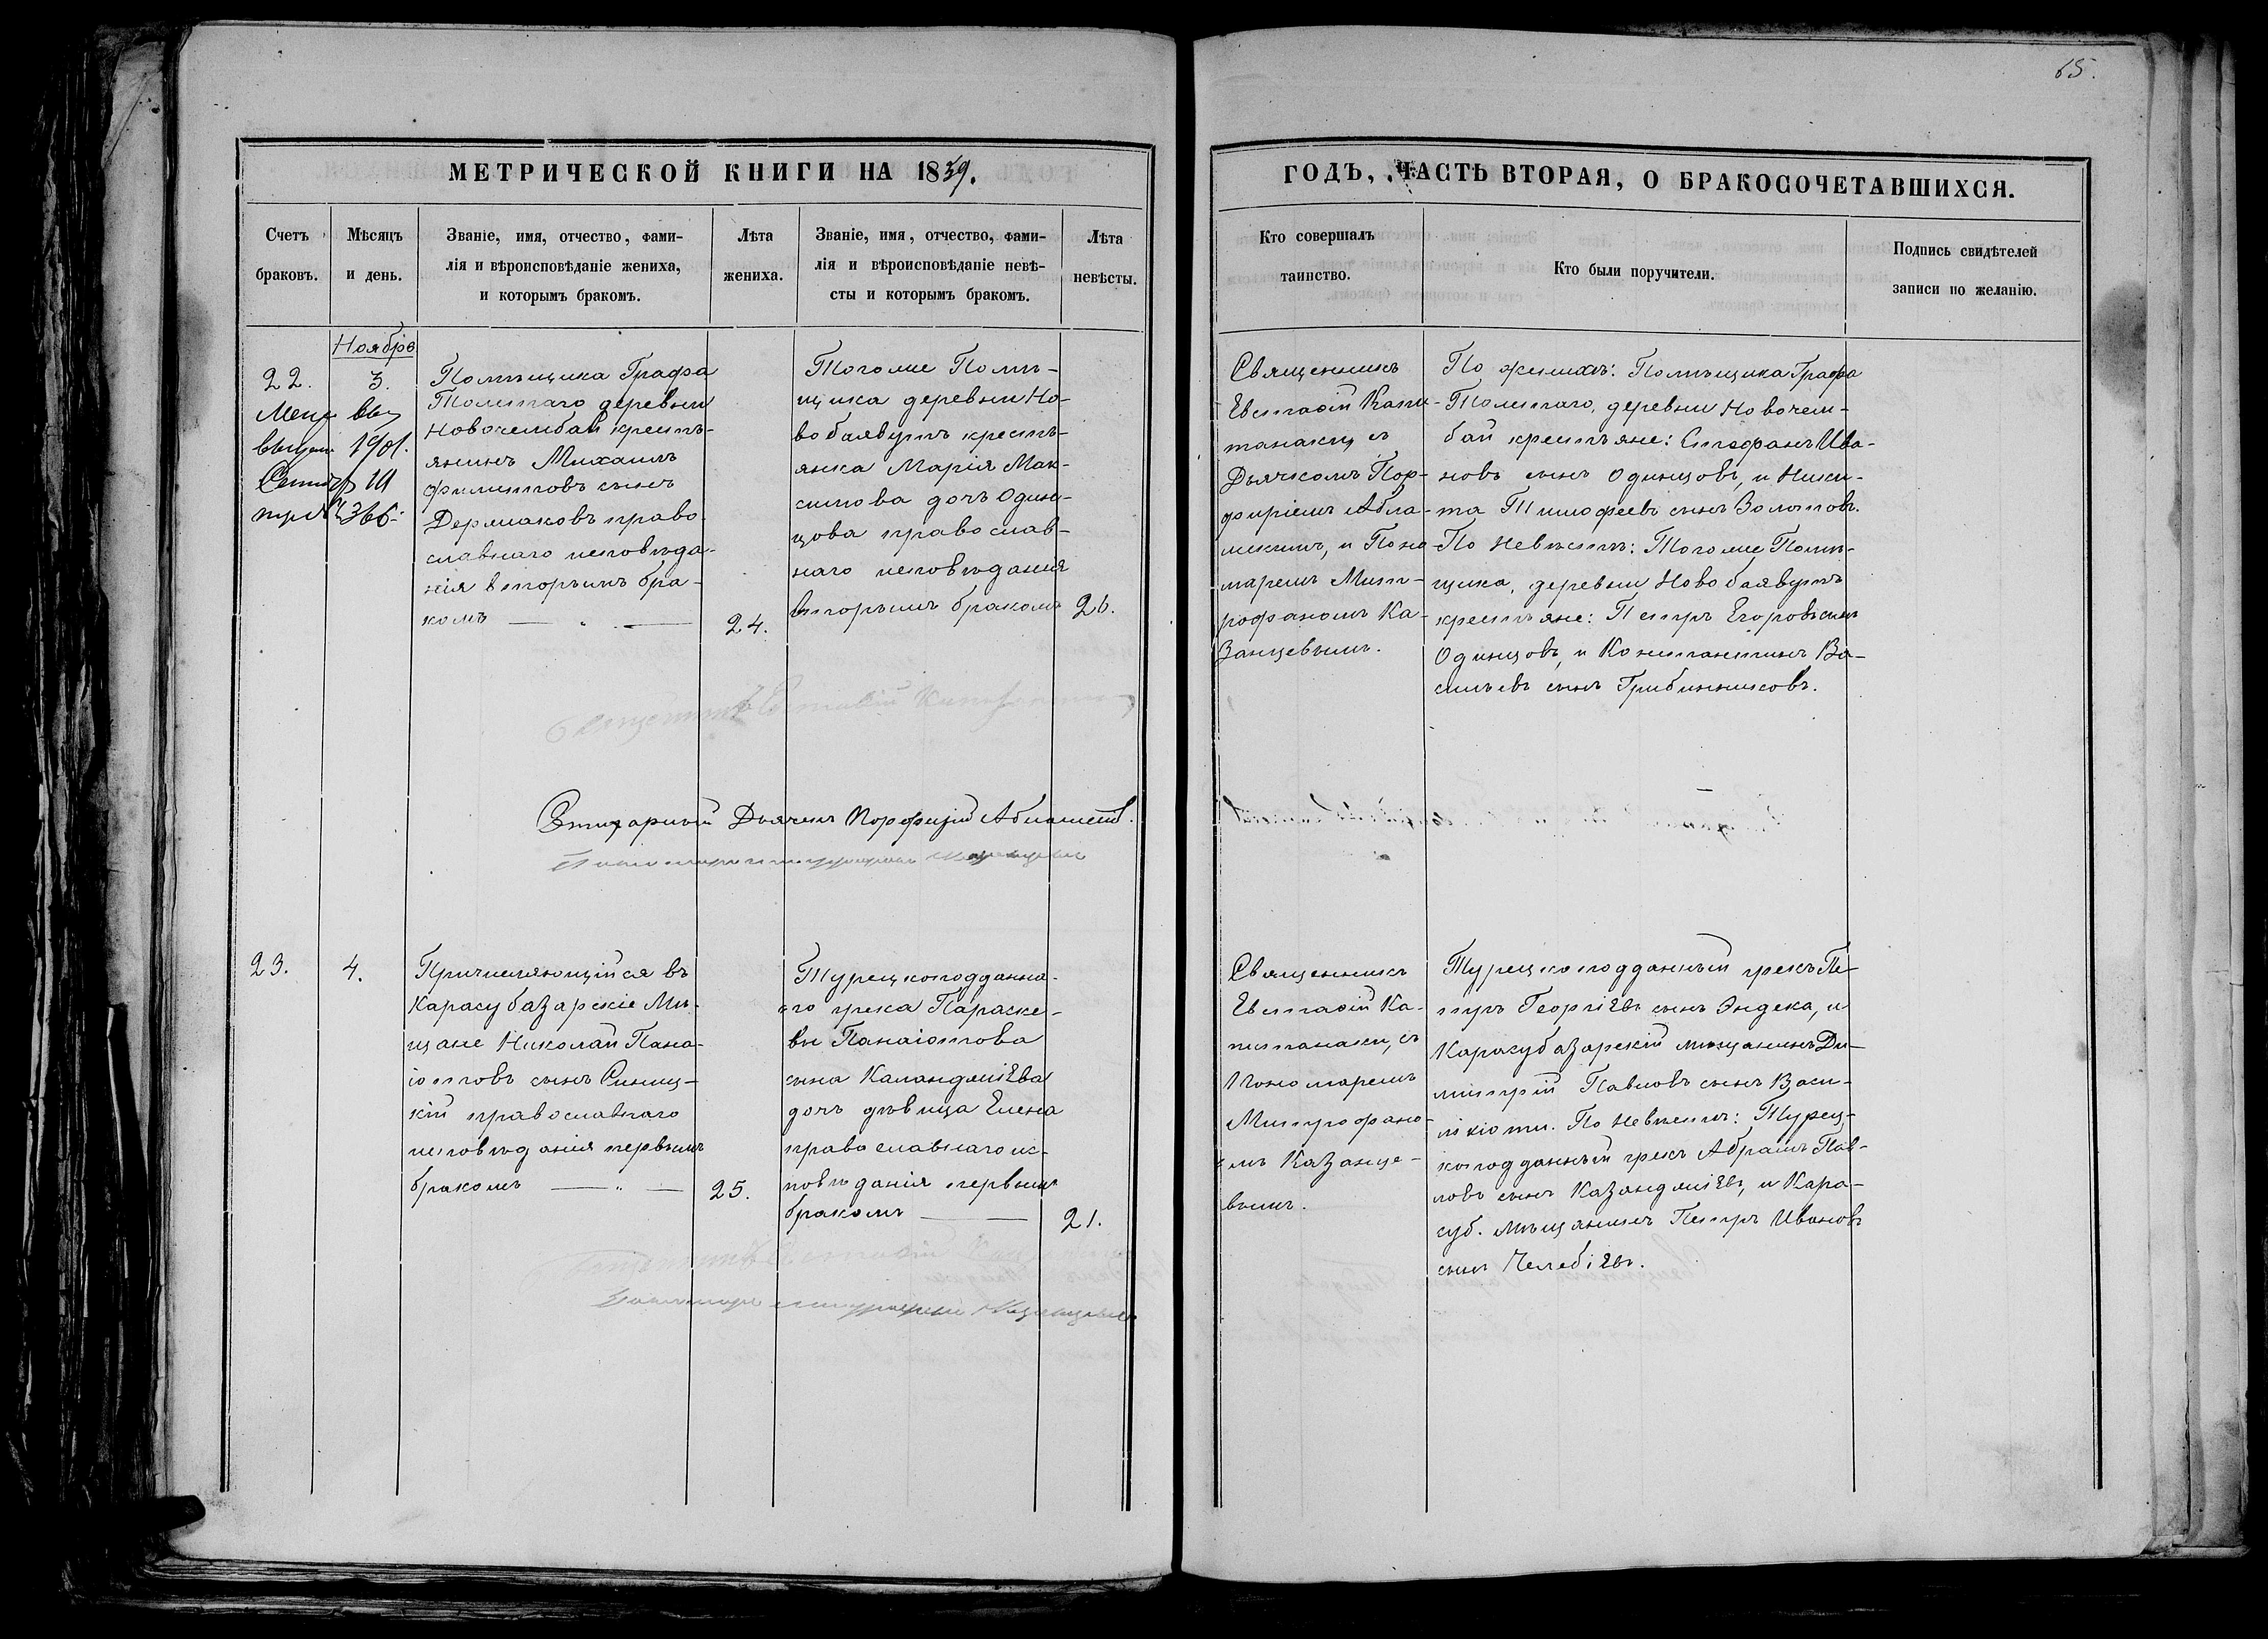 65.
МЕТРИЧЕСКОЙ КНИГИ НА 1859.
ГОДЪ, ЧАСТЬ ВТОРАЯ, О БРАКОСОЧЕТАВШИХСЯ.
Счетъ браковъ.
Мѣсяцъ и день.
Званіе, имя, отчество, фами-
лія и вѣроисповѣданіе жениха,
и которымъ бракомъ.
Лѣта жениха.
Званіе, имя, отчество, фами-
лія и вѣроисповѣданіе невѣ-
сты и которымъ бракомъ.
Лѣта невѣсты.
Кто совершалъ
таинство.
Кто были поручители.
Подпись свидѣтелей
записи по желанію.
Ноябрь
22.
3.
1901.
Помѣщика Графа
Толстаго деревни
Новочембай кресть-
янинъ Михаилъ
Филиповъ сынъ
Держаковъ право-
славнаго исповѣда-
нія вторымъ бра-
комъ
24.
Тогоже Помѣ-
щика деревни Но-
вобаявутъ кресть-
янка Марія Мак-
симова дочь Один-
цова православ-
наго исповѣданія
вторымъ бракомъ
26.
Священникъ
Евстафій Капи-
танаки, съ
Дьячкомъ Пор-
фиріемъ Абла-
жимъ, и Поно-
маремъ Мит-
рофаномъ Ка-
занцевымъ.
По женихѣ: Помѣщика Графа
Толстаго, деревни Новочем-
бай крестьяне: Стефанъ Ива-
новъ сынъ Одинцовъ, и Ники-
та Тимофеевъ сынъ Золотовъ.
По Невѣстѣ: Тогоже Помѣ-
щика, деревни Новобаявутъ
крестьяне: Петръ Егоровъ сынъ
Одинцовъ, и Константинъ Ва-
сильевъ сынъ Грибинниковъ.
Дьячекъ Порфирій
23.
4.
Причисляющійся въ
Карасубазарскіе Мѣ-
щане Николай Пана-
іотовъ сынъ Синиц-
кій православнаго
исповѣданія первымъ
бракомъ
25.
Турецкоподданна-
го грека Параске-
вы Панаіотова
сына Каланджіева
дочь дѣвица Елена
православнаго ис-
повѣданія первымъ
бракомъ
21.
Священникъ
Евстафій Ка-
питанаки, съ
Пономаремъ
Митрофано-
мъ Казанце-
вымъ.
Турецкоподданный грекъ Пе-
тръ Георгіевъ сынъ Эндека, и
Карасубазарскій мѣщанинъ Ди-
митрій Павловъ сынъ Васи-
ликіоти. По Невѣстѣ: Турец-
коподданный грекъ Абрамъ Пав-
ловъ сынъ Казанджіевъ, и Кара-
суб. мѣщанинъ Петръ Ивановъ
сынъ Челебіевъ.